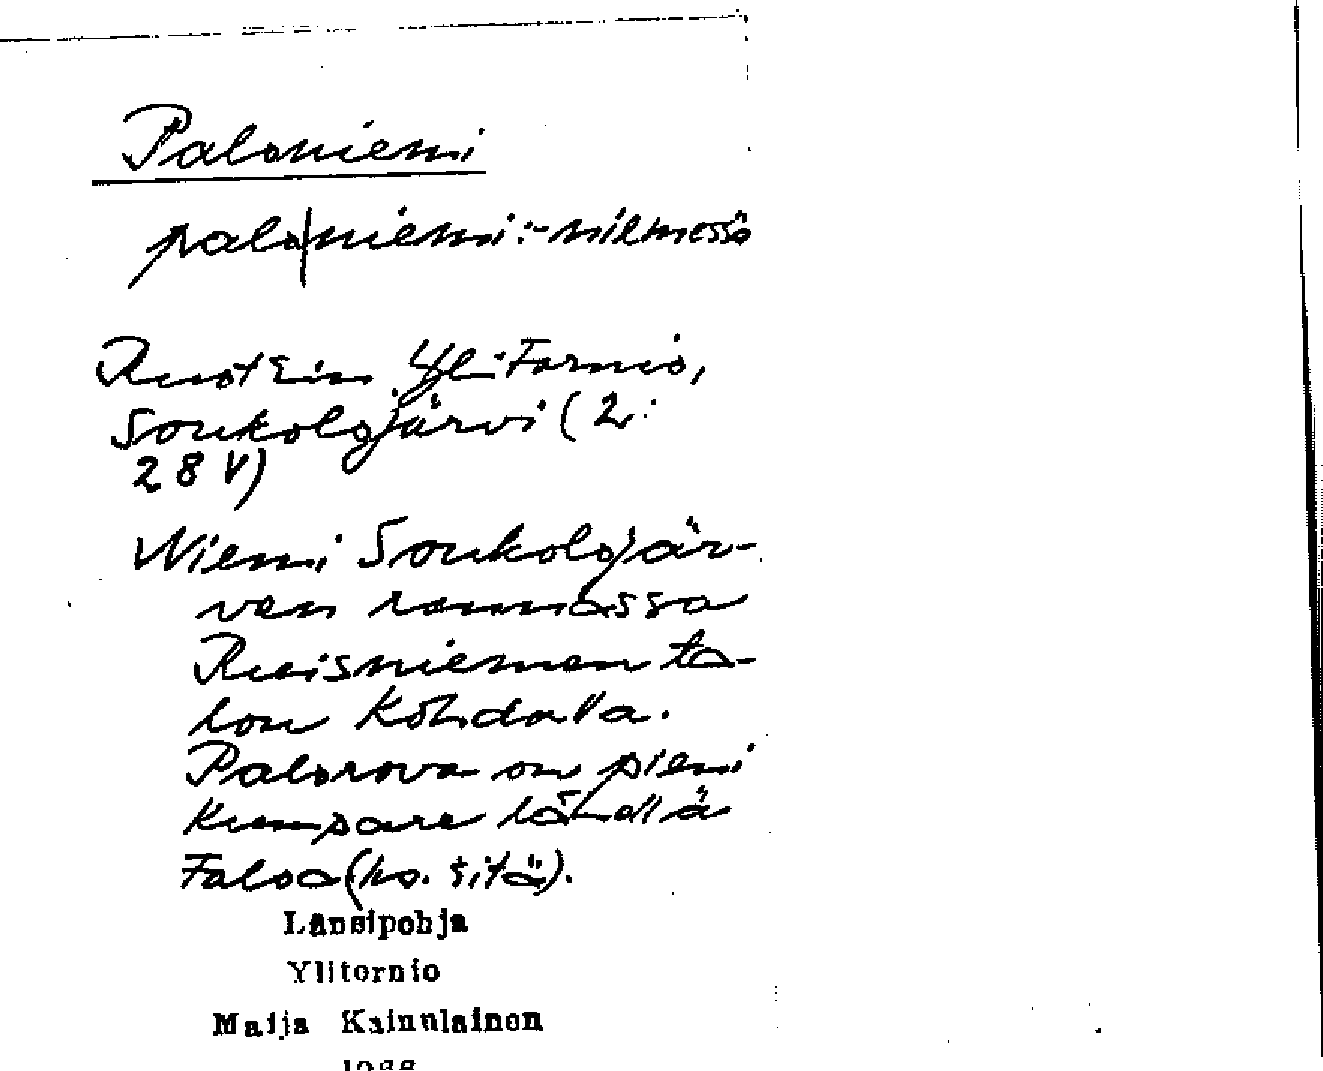 Paloniemi
palo|niemi:-niemessä
Ruotsin Ylitornio,
Soukolojärvi (2:
28 V)
Niemi Soukolojär-
ven rannassa
Ruisniemen ta-
lon kohdalla.
Palorova on pieni
kumpare lähellä
taloa (ks. sitä).
Länsipohja
Ylitornio
Maija Kainulainen